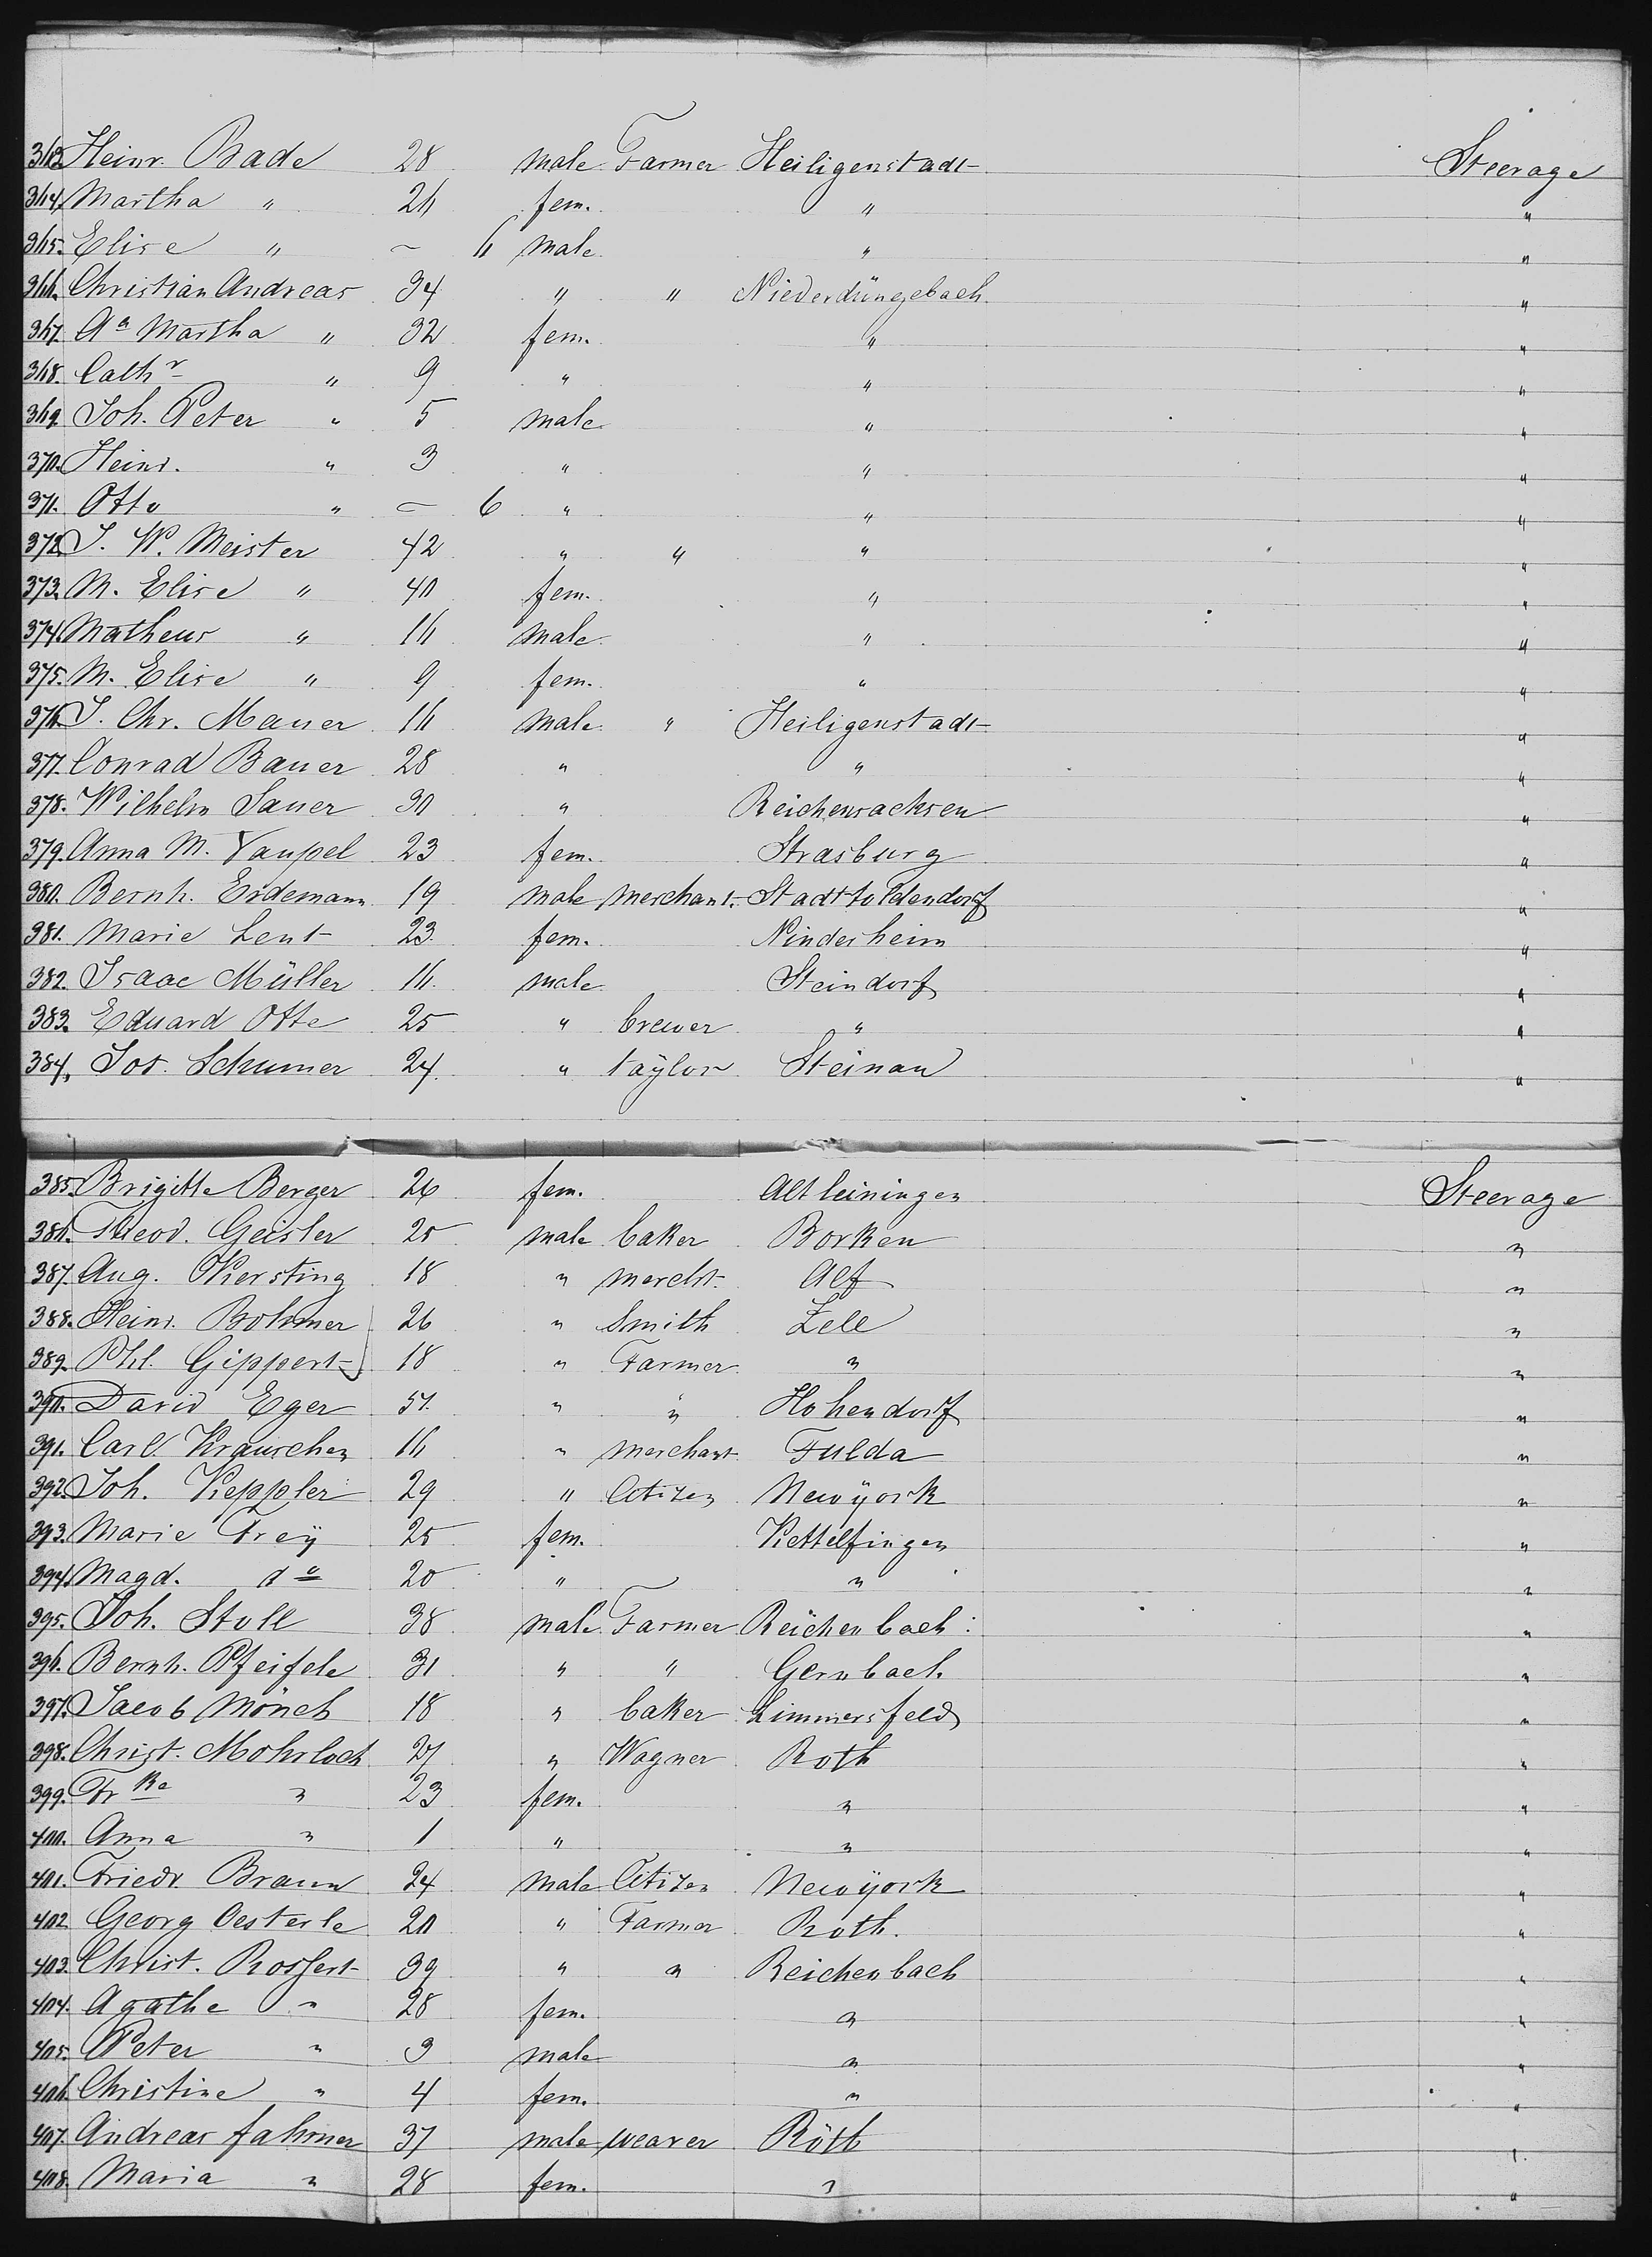 363. Heinr. Bade 28 male Farmer Heiligenstadt Steerage
364. Martha " 26 fem. " "
365. Elise " – 6 male " "
366. Christian Andreas 34 " " Niederdüngebach "
367. Aa Martha " 32 fem. " "
368. Cathr " 9 " " "
369. Joh. Peter " 5 male " "
370. Heinr. " 3 " " "
371. Otto " – 6 " " "
372. J. W. Meister 42 " " " "
373. M. Elise " 40 fem. " "
374. Matheus " 16 male " "
375. M. Elise " 9 fem. " "
376. J. Chr. Mauer 16 male " Heiligenstadt "
377. Conrad Bauer 28 " " "
378. Wilhelm Sauer 30 " Reichensachsen "
379. Anna M. Vaupel 23 fem. Strasburg "
380. Bernh. Erdemann 19 male merchant. Stadttoldendorf "
381. Marie Lent 23. fem. Ninderheim "
382. Isaac Müller 16. male Steindorf "
383. Eduard Otte 25 " brewer " "
384. Jos. Schumer 24. " taylor Steinau "
385. Brigitte Berger 26 fem. Altleiningen Steerage
386. Theod. Geisler 25 male baker Borken "
387. Aug. Kersting 18 " mercht. Alf "
388. Heinr. Bohmer 26 " Smith Zell "
389. Phl. Gippert 18 " Farmer " "
390. David Eger 57. " " Hohendorf "
391. Carl Krauschen 16 " merchant Fulda "
392. Joh. Keppler 29 " Citizen Newÿork "
393. Marie Freÿ 25 fem. Kettelfingen "
394. Magd. do 20 " " "
395. Joh. Stoll 38 male Farmer Reichenbach "
396. Bernh. Pfeifele 31 " " Gernbach "
397. Jacob Mönch 18 " baker Simmersfeld "
398. Christ. Mohrloch 27 " Wagner Roth "
399. Frke " 23 fem. " "
400. Anna " 1 " " "
401. Friedr. Braun 24 male Citizen Newÿork "
402 Georg Oesterle 20 " Farmer Roth. "
403. Christ. Rossert 39 " " Reichenbach "
404. Agathe " 28 fem. " "
405. Peter " 9 male " "
406. Christine " 4 fem. " "
407. Andreas Fahrner 37 male weaver Röth "
408. Maria " 28 fem. " "